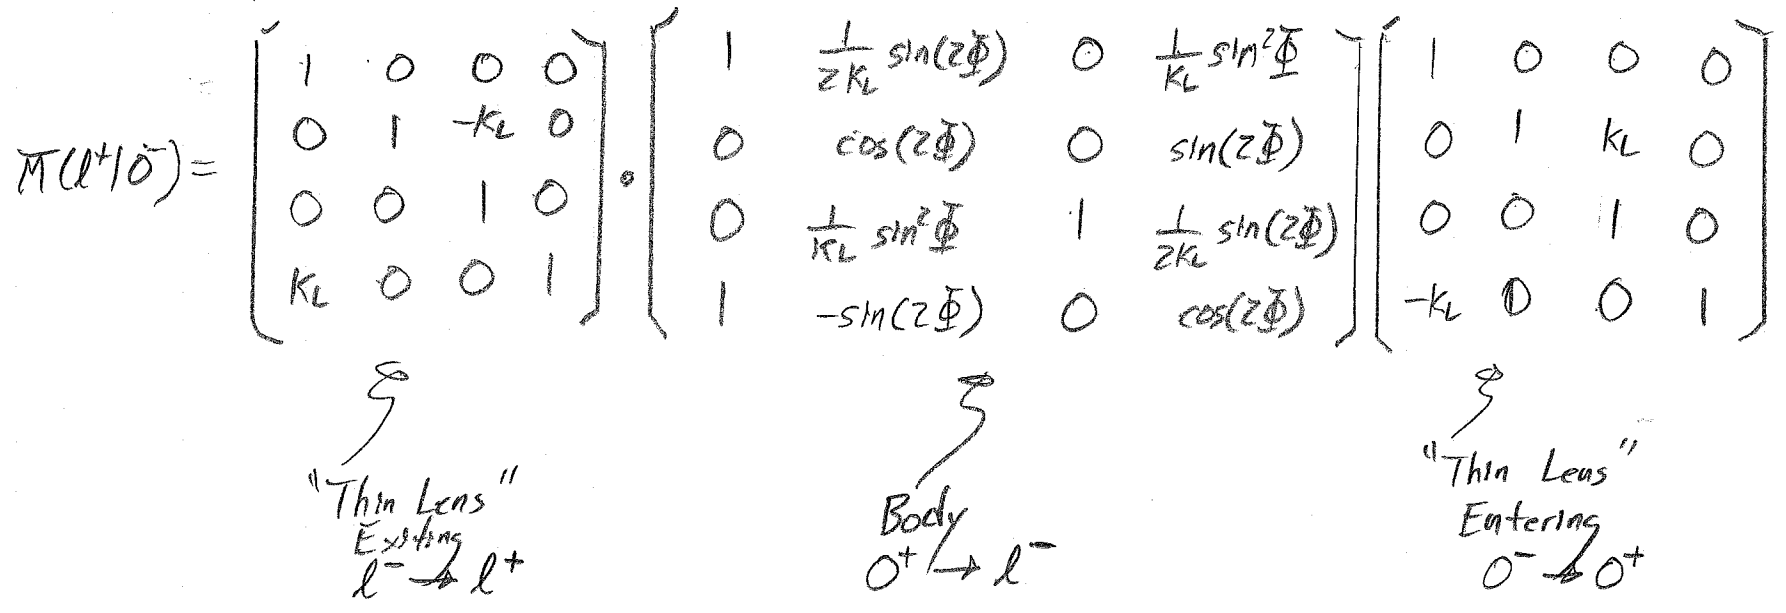 M(ℓ⁺|0⁻) = [ 1 0 0 0 ; 0 1 -k_L 0 ; 0 0 1 0 ; k_L 0 0 1 ] · [ 1 1/(2k_L) sin(2Φ) 0 1/k_L sin²Φ ; 0 cos(2Φ) 0 sin(2Φ) ; 0 1/k_L sin²Φ 1 1/(2k_L) sin(2Φ) ; 1 -sin(2Φ) 0 cos(2Φ) ] [ 1 0 0 0 ; 0 1 k_L 0 ; 0 0 1 0 ; -k_L 0 0 1 ]
"Thin Lens"
Exiting
ℓ⁻ → ℓ⁺
Body
0⁺ → ℓ⁻
"Thin Lens"
Entering
0⁻ → 0⁺